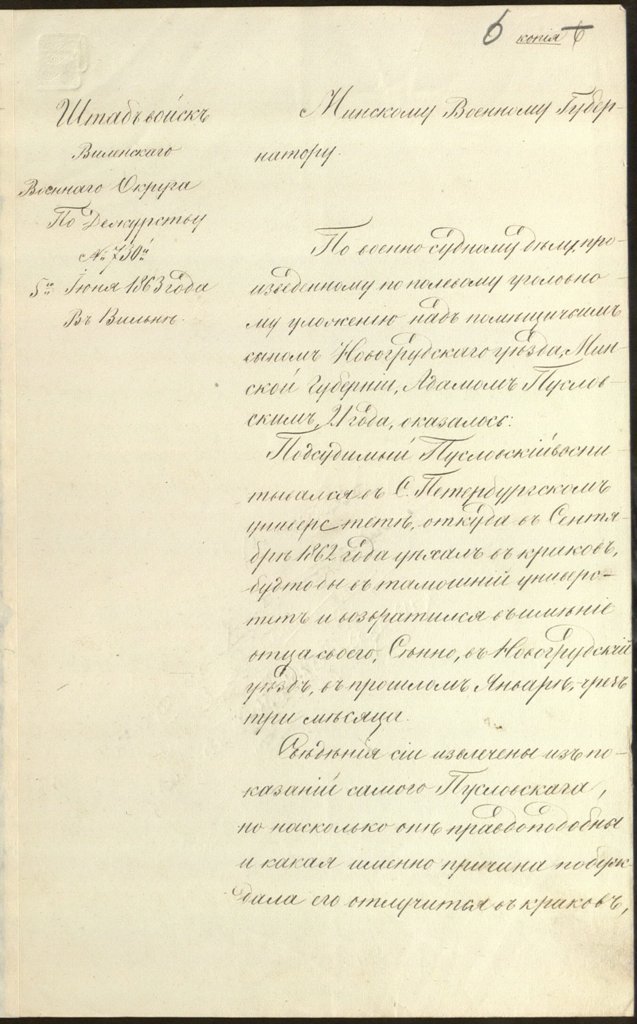 6 копія 6
Штабъ войскъ
Виленскаго
Военнаго Округа
По Дежурству
№ 730
5го Іюня 1863 года
Въ Вильнѣ.
Минскому Военному Губер-
натору.
По военно судному дѣлу, про-
изведенному по полевому уголовно-
му уложенію надъ помѣщичьимъ
сыномъ Новогрудскаго уѣзда, Мин-
ской Губерніи, Адамомъ Пуслов-
скимъ, 21 года, оказалось:
Подсудимый Пусловскій воспи-
тывался въ С. Петербургскомъ
универс тетѣ, откуда въ Сентя-
брѣ 1862 года уѣхалъ въ краковъ,
будтобы въ тамошній универс-
тетъ и возвратился въ имѣніе
отца своего, Сѣнно, въ Новогрудскій
уѣздъ, въ прошломъ Январѣ, чрезъ
три мѣсяца.
Свѣдѣнія сіи извлечены изъ по-
казаній самого Пусловскаго,
но насколько онѣ правдоподобны
и какая именно причина побуж-
дала его отлучится въ краковъ,